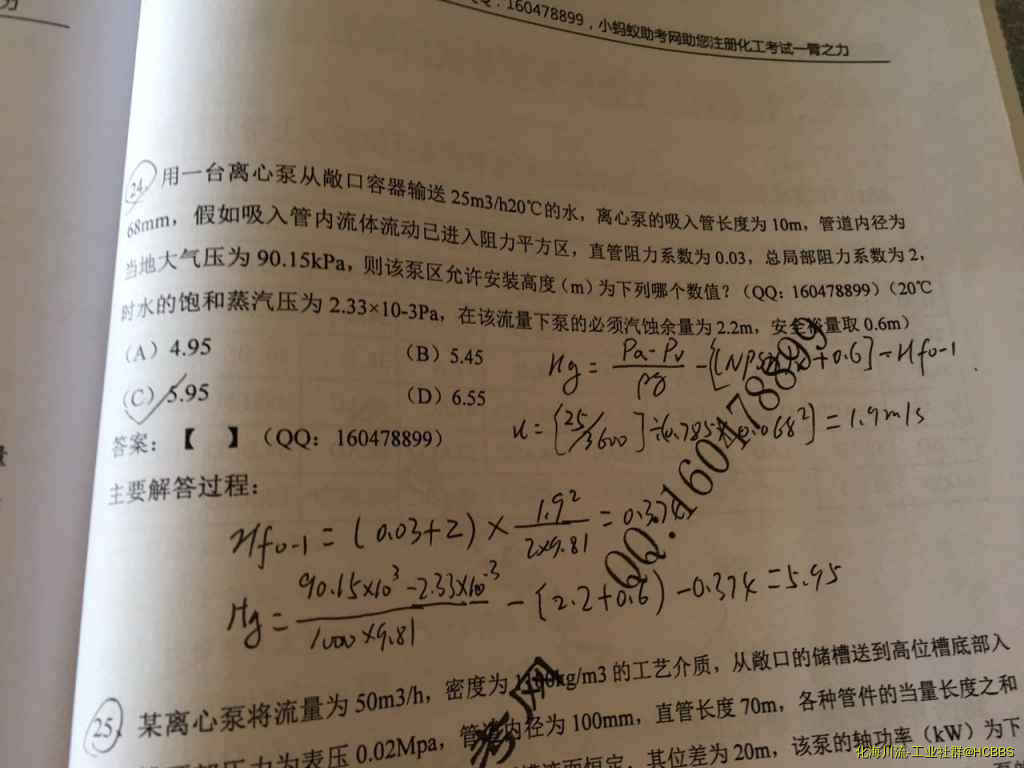 力
：160478899，小蚂蚁助考网助您注册化工考试一臂之力
24. 用一台离心泵从敞口容器输送 25m3/h20℃的水，离心泵的吸入管长度为 10m，管道内径为
68mm，假如吸入管内流体流动已进入阻力平方区，直管阻力系数为 0.03，总局部阻力系数为 2，
当地大气压为 90.15kPa，则该泵区允许安装高度（m）为下列哪个数值？（QQ：160478899）（20℃
时水的饱和蒸汽压为 2.33×10-3Pa，在该流量下泵的必须汽蚀余量为 2.2m，安全裕量取 0.6m）
（A）4.95
（B）5.45
（C）5.95
（D）6.55
Hg = (Pa-Pv)/ρg - [(NPSH)+0.6] - Hf0-1
u = [25/3600]÷(0.785×0.068²] = 1.9m/s
答案：【 】（QQ：160478899）
主要解答过程：
Hf0-1 = (0.03+2) × 1.9²/2×9.81 = 0.374
Hg = 90.15×10³-2.33×10⁻³/1000×9.81 - (2.2+0.6) - 0.374 = 5.95
QQ:160478899
考网
25. 某离心泵将流量为 50m3/h，密度为 1100kg/m3 的工艺介质，从敞口的储槽送到高位槽底部入
压力为表压 0.02Mpa，管道内径为 100mm，直管长度 70m，各种管件的当量长度之和
面恒定，其位差为 20m，该泵的轴功率（kW）为下
量
化海川流-工业社群@HCBBS